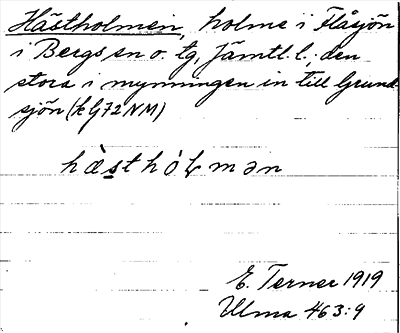 Hästholmen, holme i Flåsjön
i Bergs sn o. tg, Jämtl. l.: den
stora i mynningen in till Grund-
sjön (k G72 NM)
hästhòɫmən
E. Terner 1919
Ulma 463:9